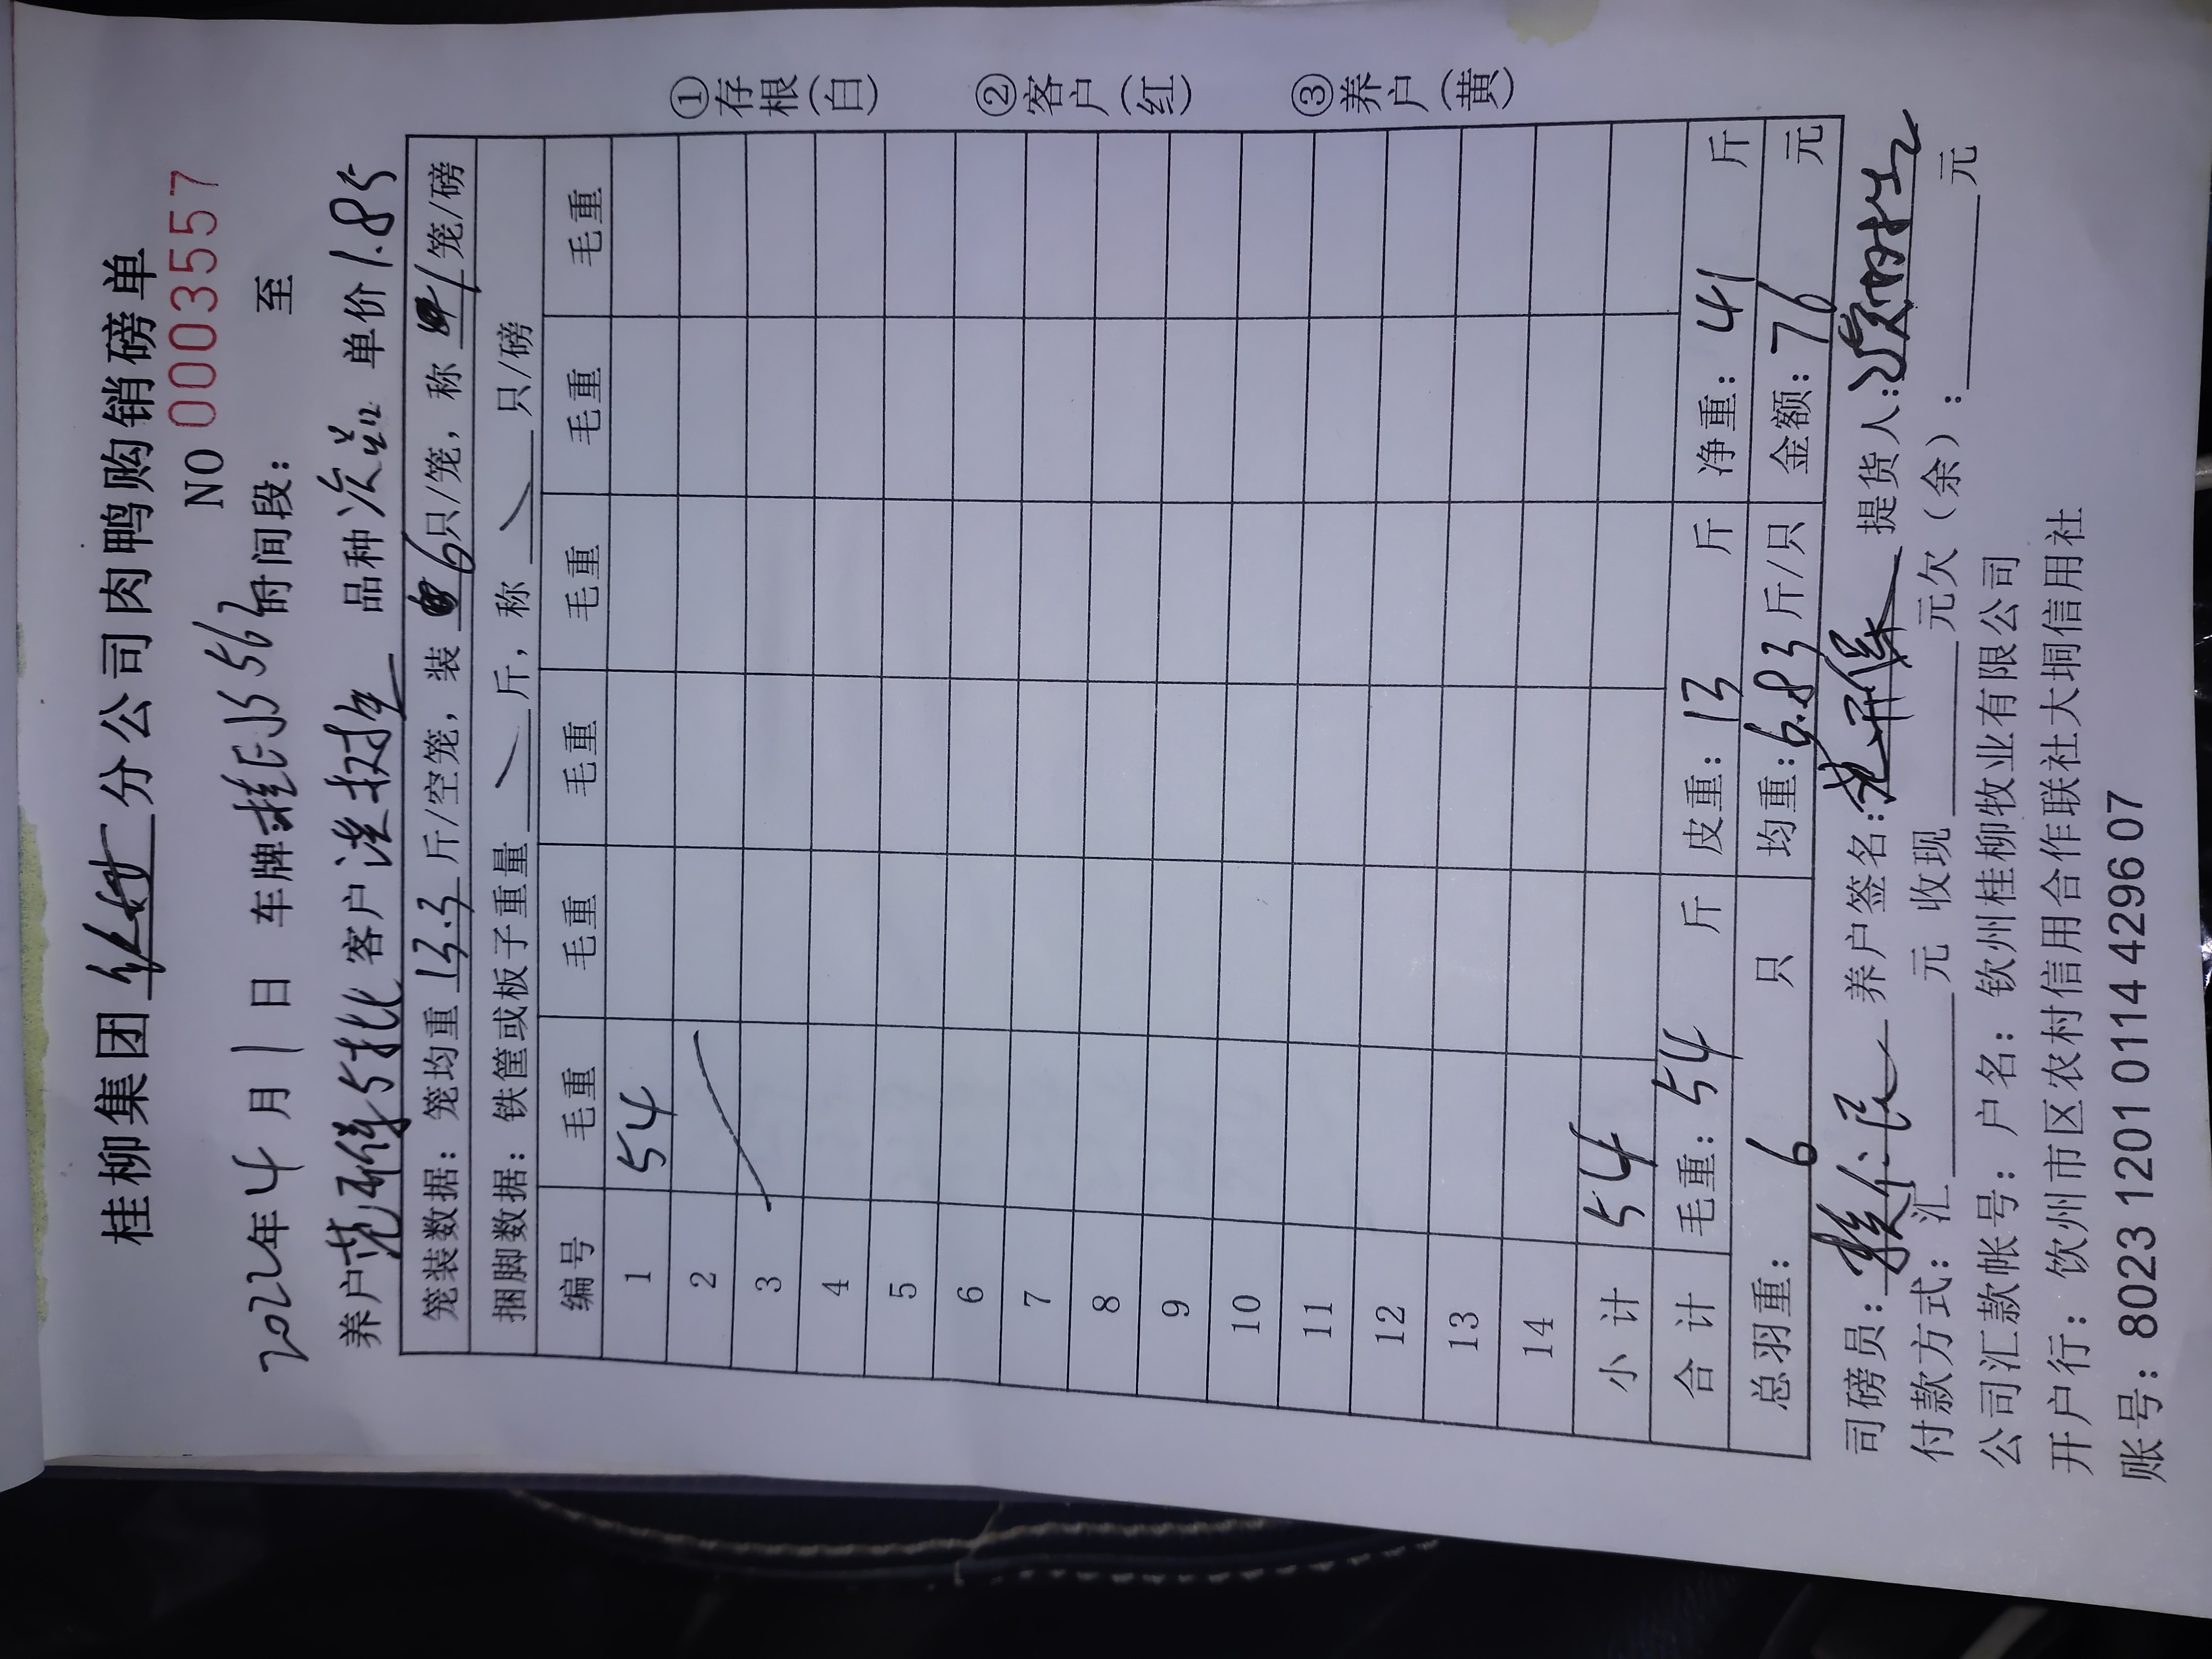 桂柳集团 分公司肉鸭购销磅单
NO 0003557
2022年4月1日 车牌桂EJ5562时间段: 至
养户范 5批 客户洪 品种次品 单价1.85
笼装数据: 笼均重 13.3 斤/空笼, 装 6只/笼, 称 1笼/磅
捆脚数据: 铁筐或板子重量 斤, 称 只/磅
编号 毛重 毛重 毛重 毛重 毛重 毛重 毛重
1 54
2
3
4
5
6
7
8
9
10
11
12
13
14
小计 54
合计 毛重: 54 斤 皮重: 13 斤 净重: 41 斤
总羽重: 6 只 均重: 6.83斤/只 金额: 76 元
司磅员: 养户签名: 提货人:
付款方式: 汇 元 收现 元欠(余): 元
公司汇款帐号: 户名: 钦州桂柳牧业有限公司
开户行: 钦州市区农村信用合作联社大垌信用社
账号: 8023 1201 0114 4296 07
①存根(白) ②客户(红) ③养户(黄)